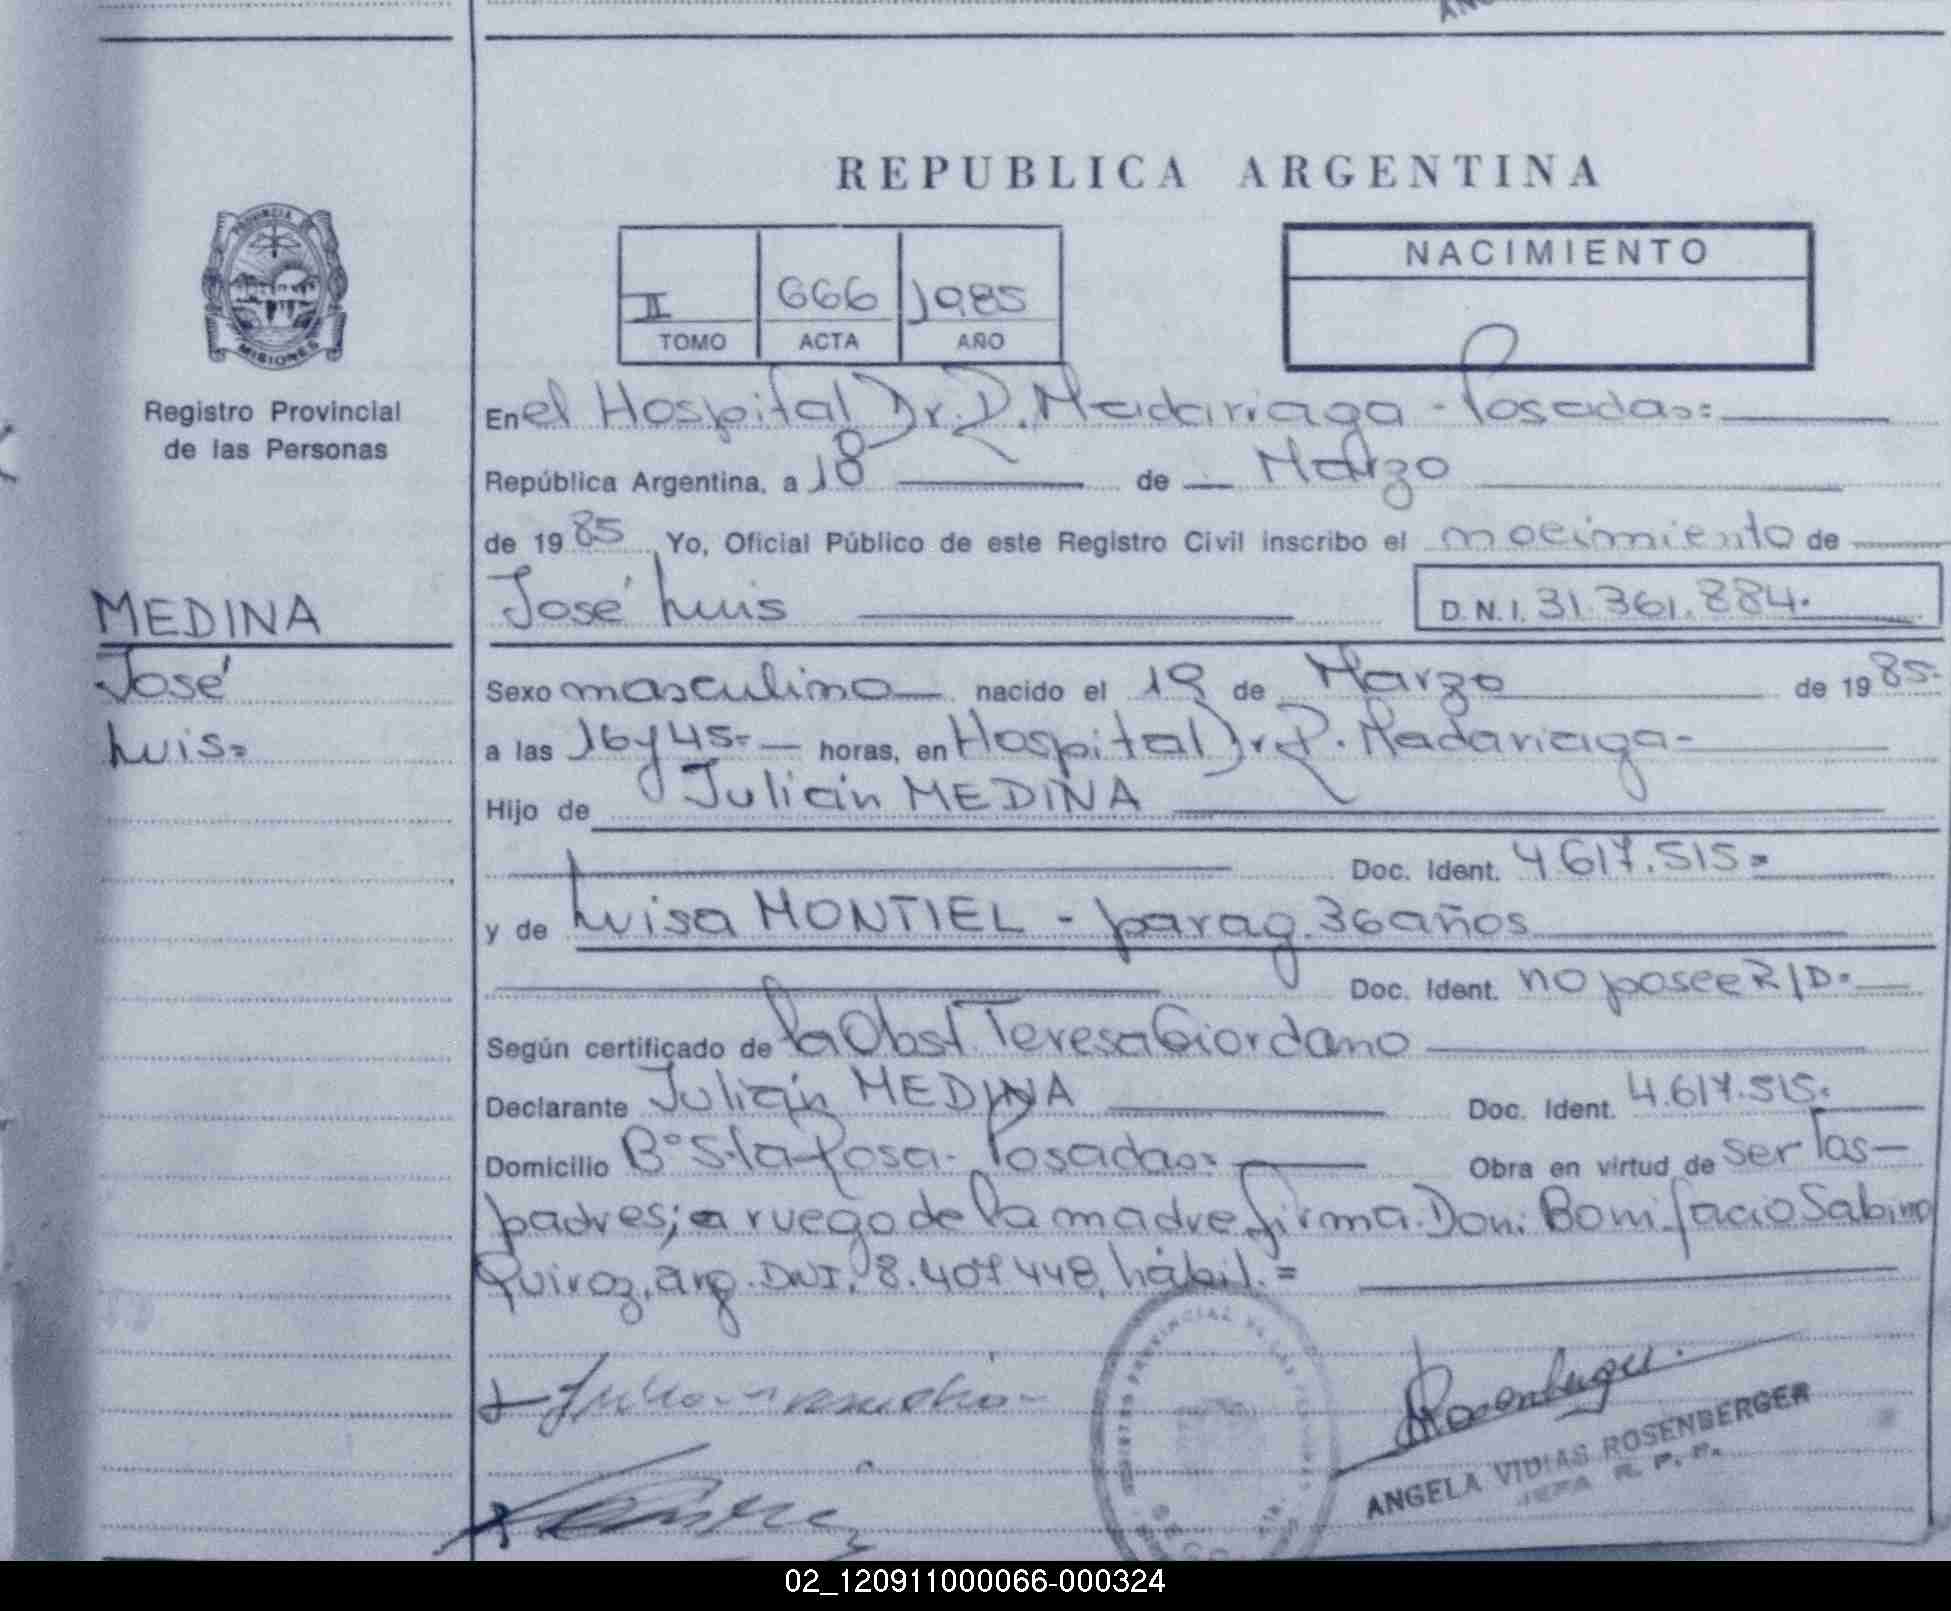 REPUBLICA ARGENTINA
PROVINCIA DE MISIONES
Registro Provincial
de las Personas
II 666 1985
TOMO ACTA AÑO
NACIMIENTO
En el Hospital Dr. R. Madariaga - Posadas=
República Argentina, a 18 de Marzo
de 1985 Yo, Oficial Público de este Registro Civil inscribo el nacimiento de
MEDINA
José
Luis=
José Luis D.N.I. 31.361.884.
Sexo masculino nacido el 19 de Marzo de 1985-
a las 16 y 45.- horas, en Hospital Dr. R. Madariaga-
Hijo de Julián MEDINA
Doc. Ident. 4.617.515=
y de Luisa MONTIEL - parag. 36 años
Doc. Ident. no posee R/D.
Según certificado de la Obst. Teresa Giordano
Declarante Julián MEDINA Doc. Ident. 4.617.515.
Domicilio B° Sta Rosa. Posadas= Obra en virtud de ser los-
padres; a ruego de la madre firma. Don: Bonifacio Sabino
Quiroz, arg. DNI. 8.407.448, hábil. =
Rosenberger.
ANGELA VIDIAS ROSENBERGER
JEFA R. P. P.
02_120911000066-000324